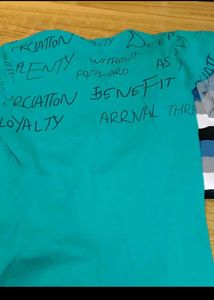 PRCIATION
PLENTY WITHOUT AS
FORWARD
PRCIATION BENEFIT
LOYALTY ARRNAL THR